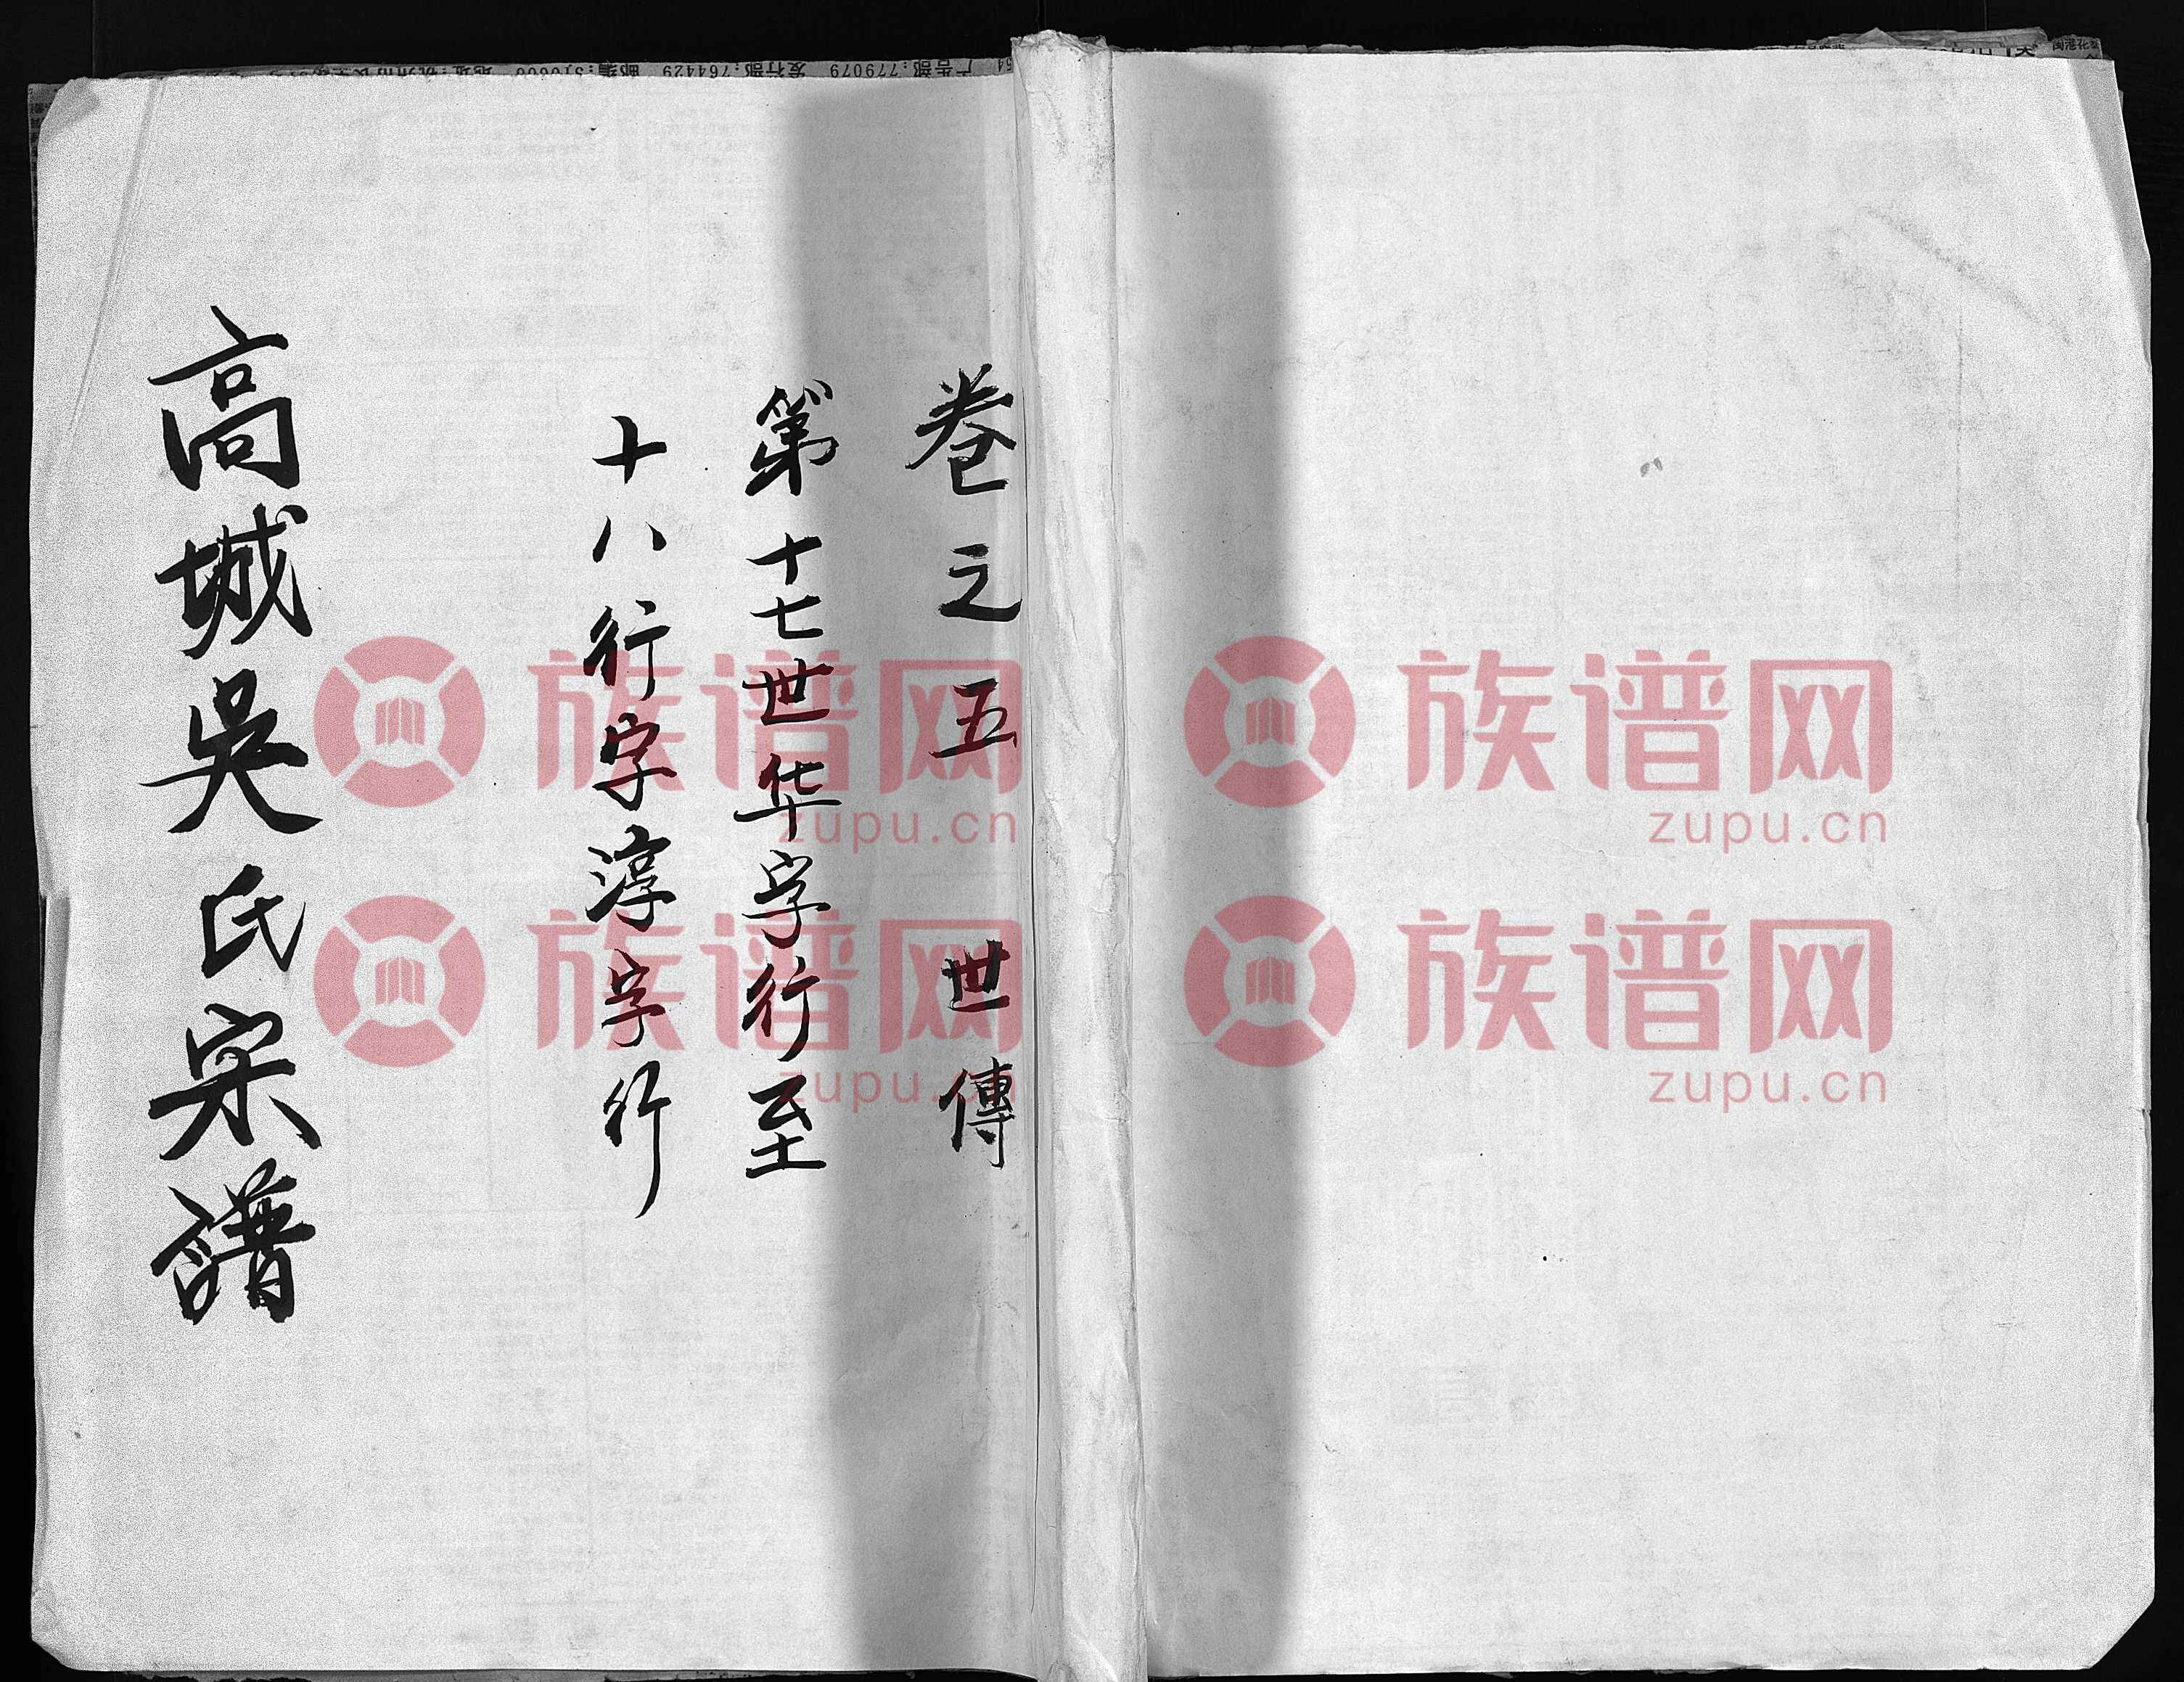 卷之五 世傳
第十七世华字行至
十八行字淳字行
高城吳氏宗譜
族谱网
zupu.cn
族谱网
zupu.cn
族谱网
zupu.cn
族谱网
zupu.cn
广告部:779079 发行部:764429